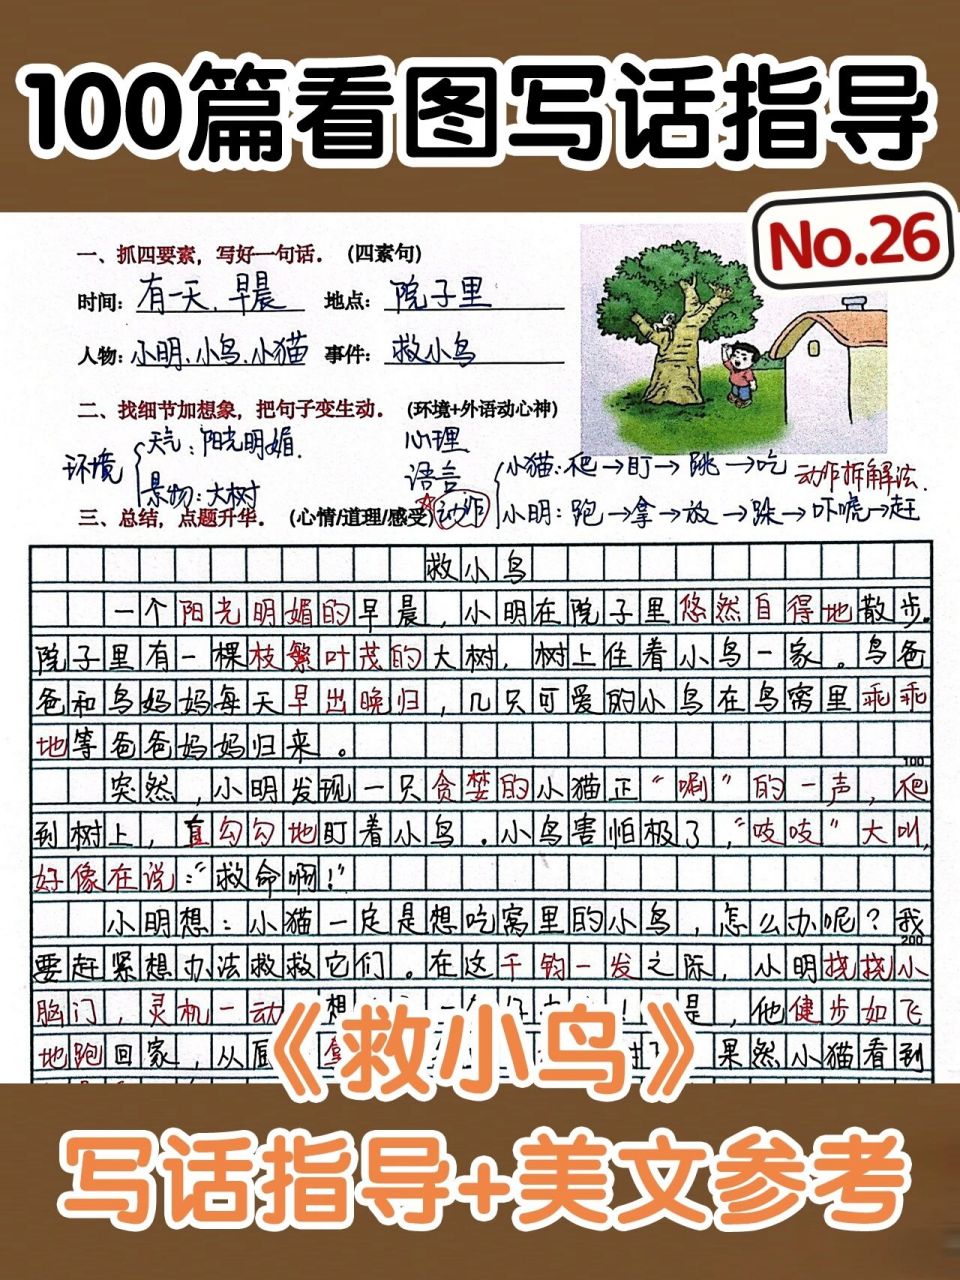 100篇看图写话指导
No.26
一、抓四要素，写好一句话．（四素句）
时间：有一天、早晨 地点：院子里
人物：小明、小鸟、小猫 事件：救小鸟
二、找细节加想象，把句子变生动．（环境+外语动心神）
环境 天气：阳光明媚．
景物：大树
心理
语言
动作
小猫：爬→盯→跳→吃 动作拆解法．
小明：跑→拿→放→跺→吓唬→赶
三、总结，点题升华．（心情/道理/感受）
救小鸟
一个阳光明媚的早晨，小明在院子里悠然自得地散步。
院子里有一棵枝繁叶茂的大树，树上住着小鸟一家。鸟爸
爸和鸟妈妈每天早出晚归，几只可爱的小鸟在鸟窝里乖乖
地等爸爸妈妈归来。
100
突然，小明发现一只贪婪的小猫正“唰”的一声，爬
到树上，直勾勾地盯着小鸟．小鸟害怕极了，“吱吱”大叫，
好像在说：“救命啊！”
小明想：小猫一定是想吃窝里的小鸟，怎么办呢？我
200
要赶紧想办法救救它们。在这千钧一发之际，小明挠挠小
脑门，灵机一动 想 是，他健步如飞
地跑回家，从 果然小猫看到
《救小鸟》
写话指导+美文参考